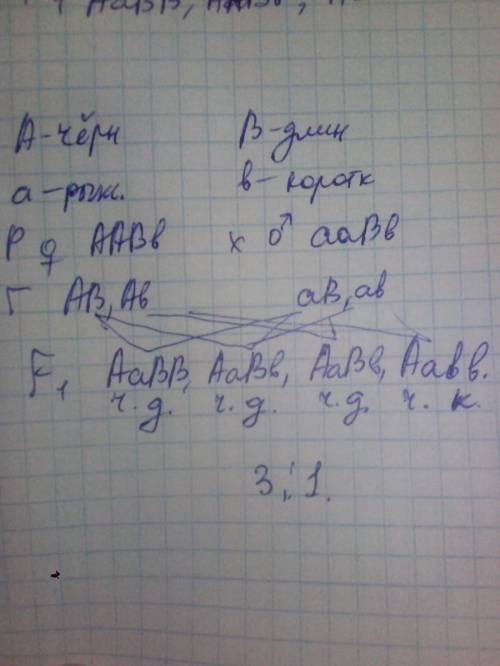 А-чёрн В-длин
а-рыж. в-коротк
Р ♀ ААВв х ♂ ааВв
Г АВ, Ав аВ, ав
F1 АаВВ, АаВв, АаВв, Аавв.
ч.д. ч.д. ч.д. ч. к.
3:1.